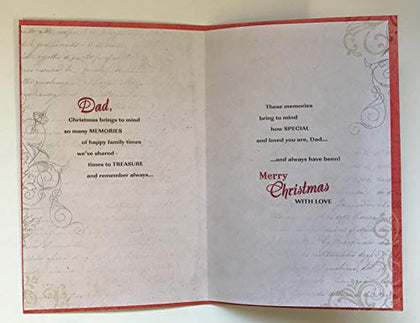 Dad,
Christmas brings to mind
so many MEMORIES
of happy family times
we've shared -
times to TREASURE
and remember always...
These memories
bring to mind
how SPECIAL
and loved you are, Dad...
...and always have been!
Merry
Christmas
WITH LOVE